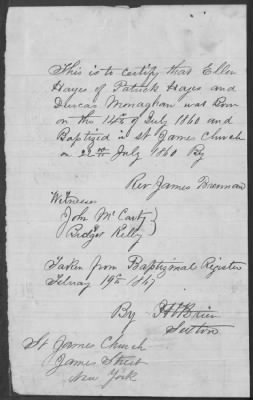 This is to certify that Ellen
Hayes of Patrick Hayes and
Dorcas Monaghan was born
on the 14th of July 1860 and
Baptized in St James Church
on 22nd July 1860 By
Rev James Brennan
Witnesses
John McCarty
Bridget Kelly
Taken from Baptizmal Register
Febuary 19th 1867
By
Sexton
St James Church
James Street
New York